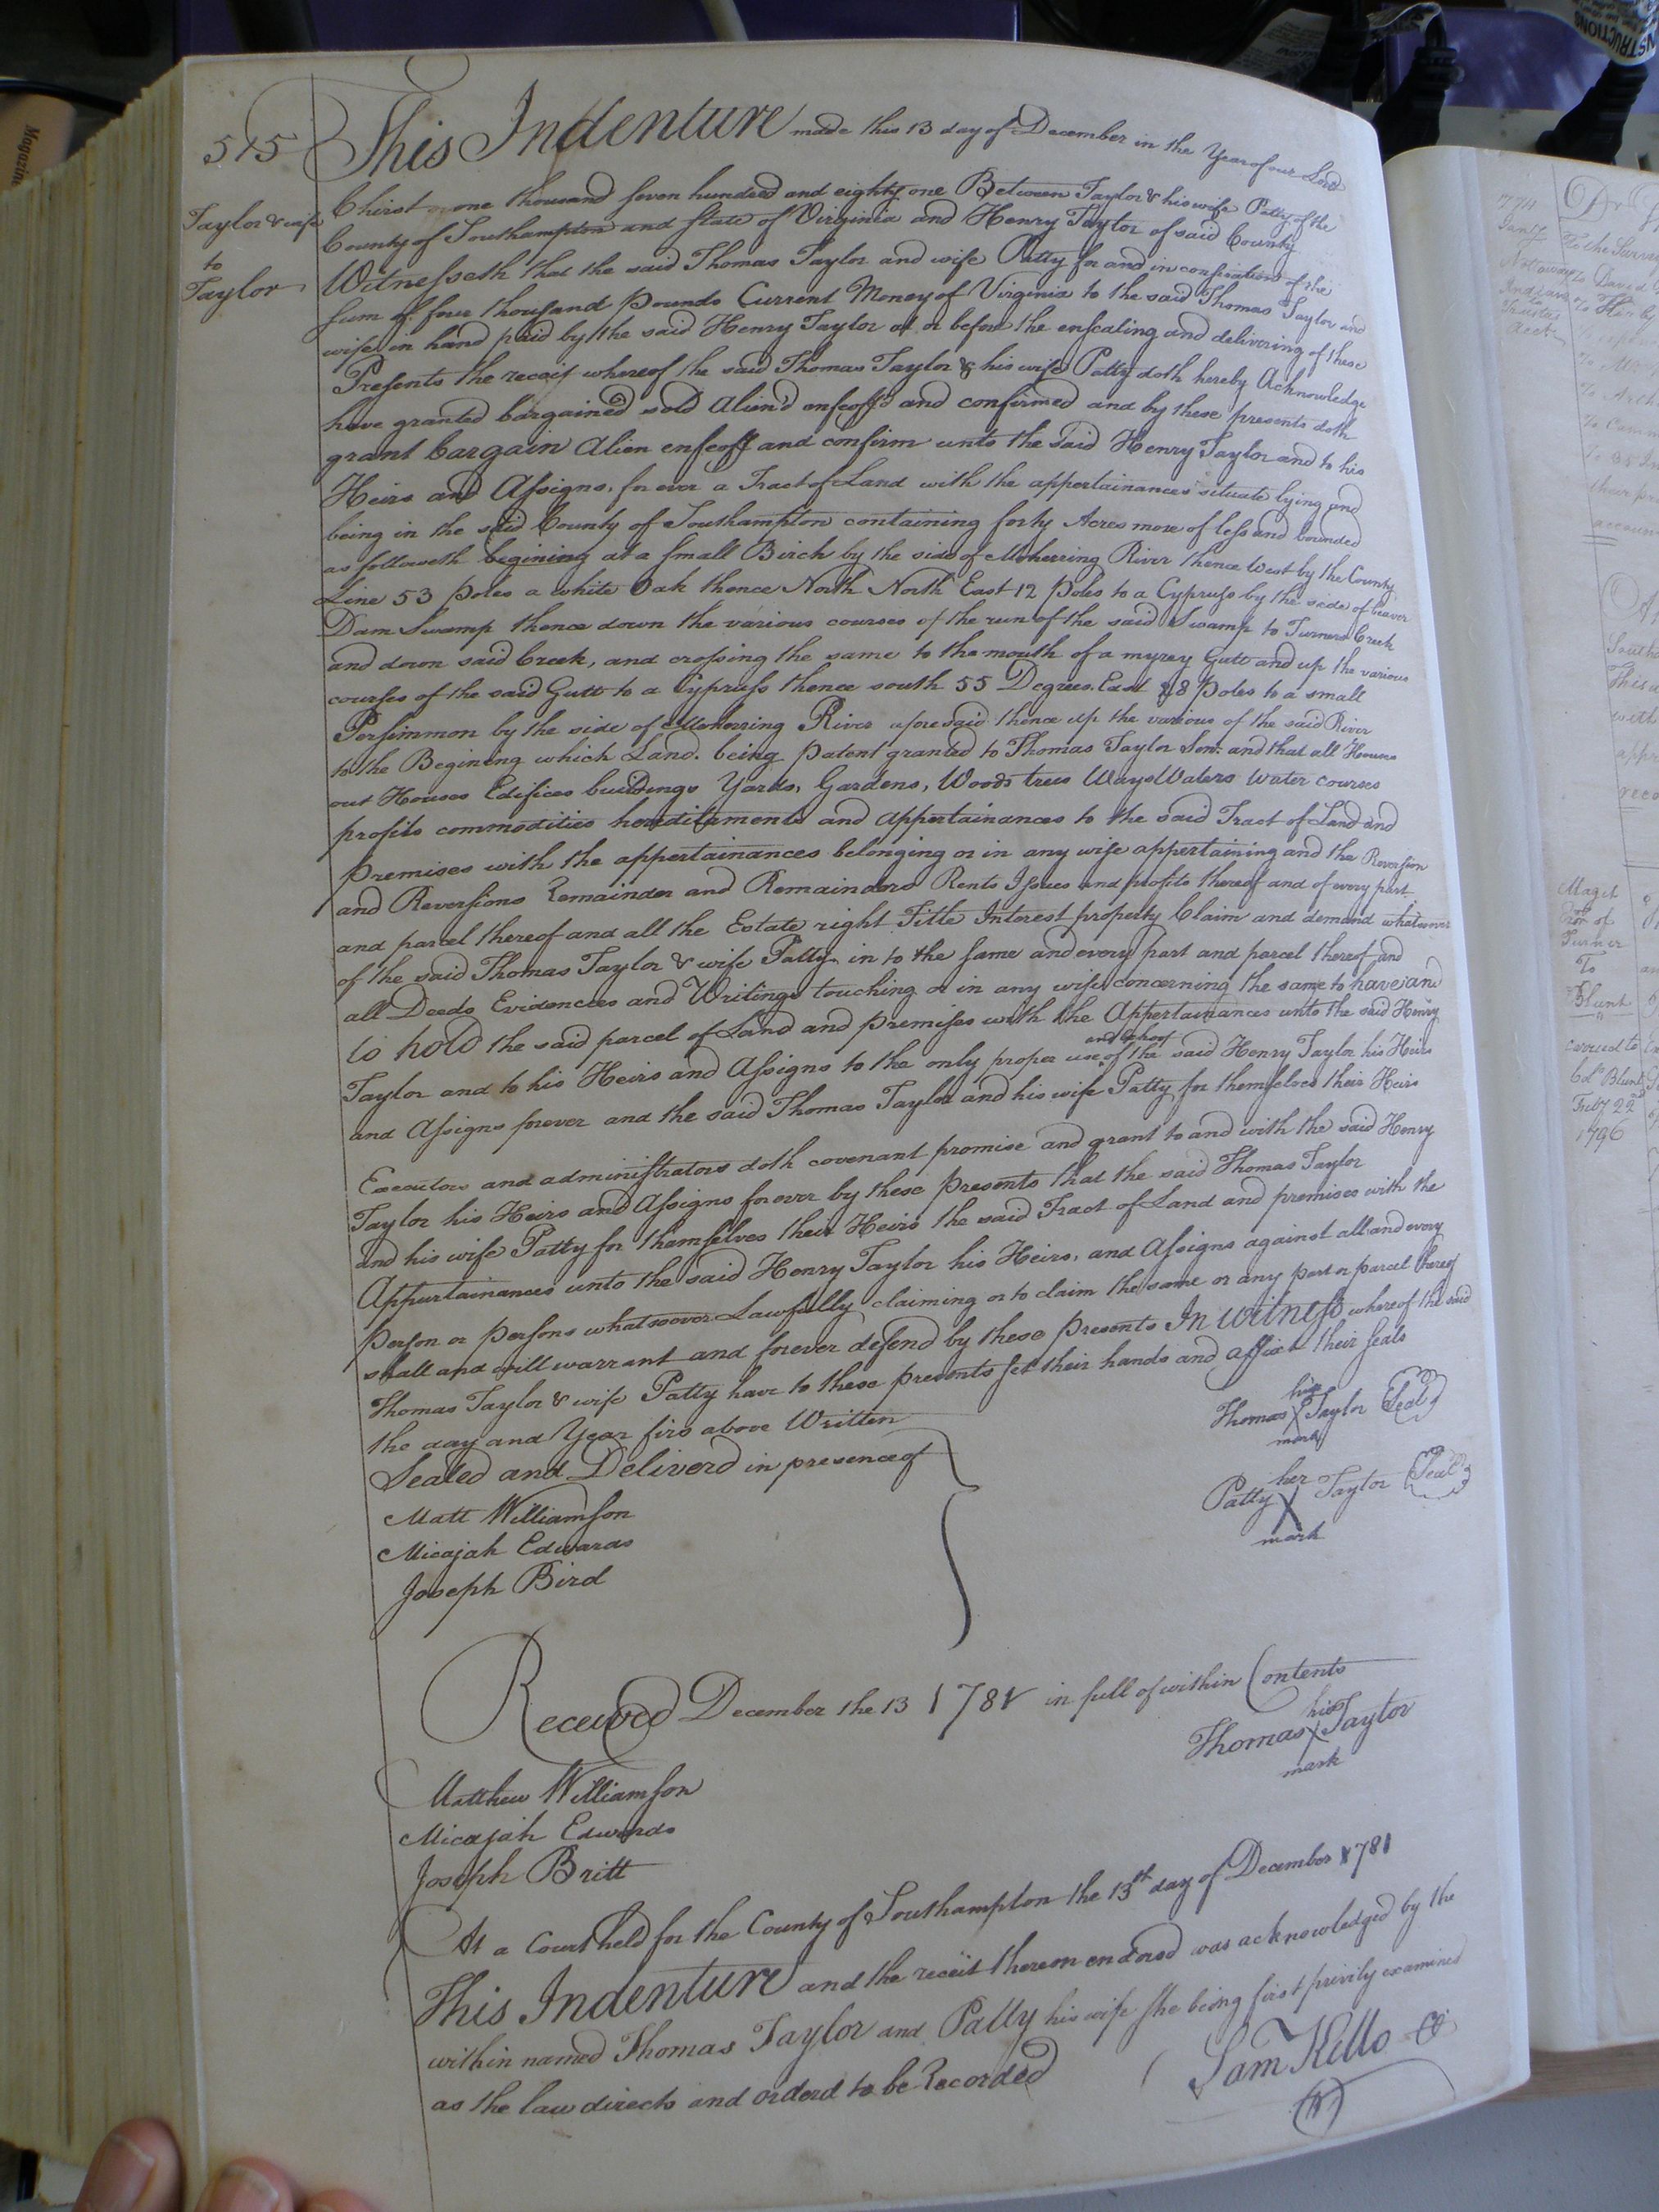 515
Taylor & wife
to
Taylor
This Indenture made this 13 day of December in the Year of our Lord
Christ one thousand seven hundred and eighty one Between Taylor & his wife Patty of the
County of Southampton and State of Virginia and Henry Taylor of said County
Witnesseth that the said Thomas Taylor and wife Patty for and in consiration of the
sum of four thousand pounds Current Money of Virginia to the said Thomas Taylor and
wife in hand paid by the said Henry Taylor at or before the ensealing and delivering of these
Presents the receip whereof the said Thomas Taylor & his wife Patty doth hereby Acknowledge
have granted bargained sold Alien'd enfeoff'd and confirmed and by these presents doth
grant bargain Alien enfeoff and confirm unto the said Henry Taylor and to his
Heirs and Assigns, for ever a Tract of Land with the appertainances situate lying and
being in the said County of Southampton containing forty Acres more of less and bounded
as followeth begining at a small Birch by the side of Meherring River thence West by the County
Line 53 poles a white Oak thence North North East 12 poles to a Cypruss by the side of beaver
Dam Swamp thence down the various courses of the run of the said Swamp to Turners Creek
and down said Creek, and crossing the same to the mouth of a myrey Gutt and up the various
courses of the said Gutt to a Cypruss thence south 55 Degrees East 28 poles to a small
Persimmon by the side of Meherring River aforesaid thence up the various of the said River
to the Begining which Land. being Patent granted to Thomas Taylor Senr. and that all Houses
out Houses Edifices buildings Yards, Gardens, Woods trees Ways Waters water courses
profits commodities hereditaments and appertainances to the said Tract of Land and
premises with the appertainances belonging or in any wise appertaining and the Reversion
and Reversions Remainder and Remainders Rents Issues and profits thereof and of every part
and parcel thereof and all the Estate right Title Interest property Claim and demand whatsoever
of the said Thomas Taylor & wife Patty in to the same and every part and parcel thereof and
all Deeds Evidences and Writings touching or in any wise concerning the same to have and
to hold the said parcel of Land and premises with the Appertainances unto the said Henry
Taylor and to his Heirs and Assigns to the only proper use and behoof of the said Henry Taylor his Heirs
and Assigns forever and the said Thomas Taylor and his wife Patty for themselves their Heirs
Executors and administrators doth covenant promise and grant to and with the said Henry
Taylor his Heirs and Assigns forever by these Presents that the said Thomas Taylor
and his wife Patty for themselves their Heirs the said Tract of Land and premises with the
Appurtainances unto the said Henry Taylor his Heirs, and Assigns against all and every
person or persons whatsoever Lawfully claiming or to claim the same or any part or parcel thereof
shall and will warrant and forever defend by these presents In witness whereof the said
Thomas Taylor & wife Patty have to these presents set their hands and affixt their seals
the day and Year firs above Written
Sealed and Deliverd in presence of
Matt Williamson
Micajah Edwards
Joseph Bird
his
Thomas X Taylor Seal
mark
her
Patty X Taylor Seal
mark
Received December the 13 1781 in full of within Contents
his
Thomas X Taylor
mark
Matthew Williamson
Micajah Edwards
Joseph Britt
At a Court held for the County of Southampton the 13th day of December 1781
This Indenture and the receit thereon endorsd was acknowledged by the
within named Thomas Taylor and Patty his wife she being first privily examined
as the law directs and orderd to be Recorded
Sam Kello
1774
To the
Indian
Maget
of
Turner
To
Blunt
Blunt
Feby 22nd
1796
Magazine